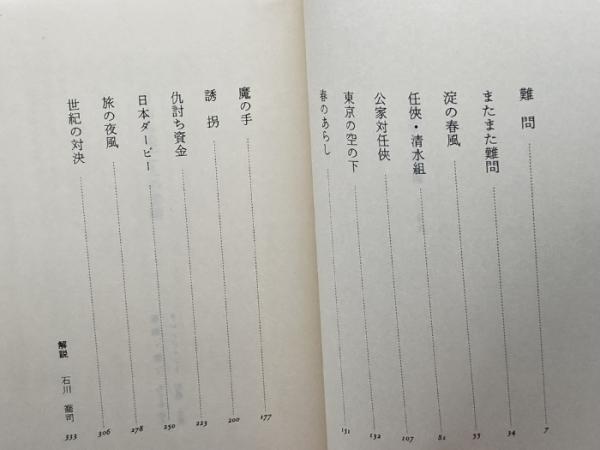 難問 7
またまた難問 34
淀の春風 55
任俠・清水組 81
公家対任俠 107
東京の空の下 132
春のあらし 151
魔の手 177
誘拐 200
仇討ち資金 223
日本ダービー 250
旅の夜風 278
世紀の対決 306
解説 石川 喬司 333